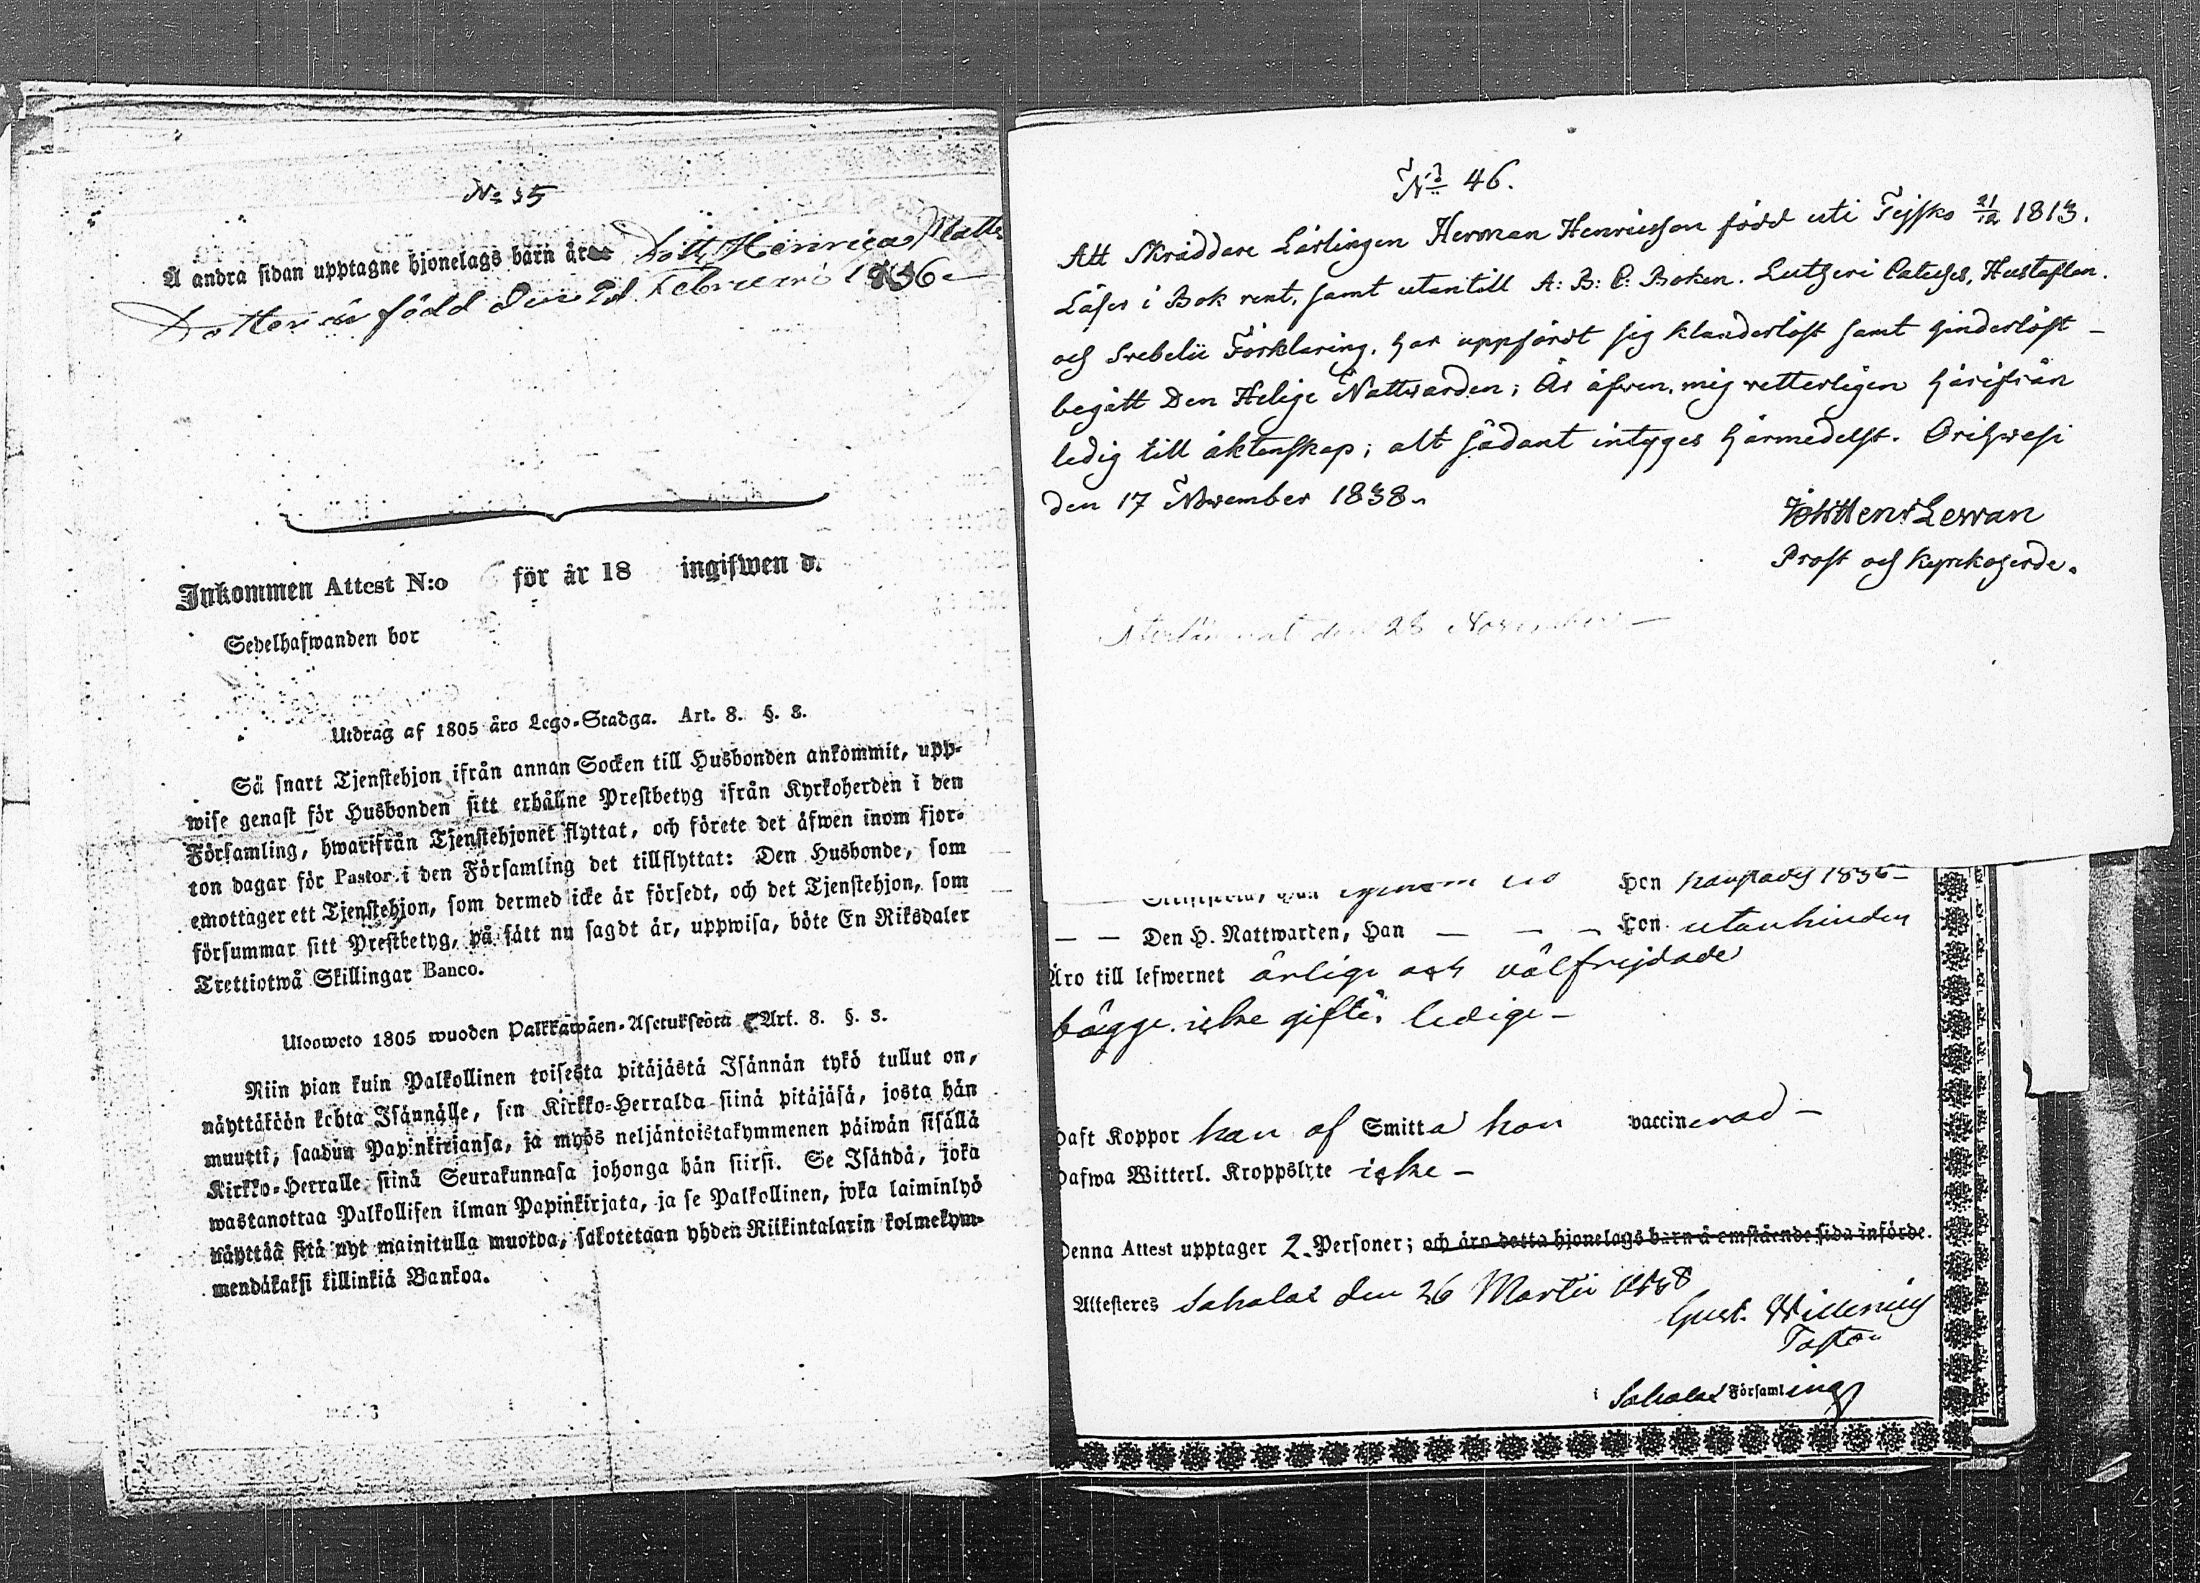 No 35
Å andra sidan upptagne hjonelags barn är Dott Henricas Matts
Dotter är född den Februari 1836
Inkommen Attest N:o för år 18 ingifwen d.
Sedelhafwanden bor
Utdrag af 1805 års Lego-Stadga. Art. 8. §. 3.
Så snart Tjenstehjon ifrån annan Socken till Husbonden ankommit, upp-
wise genast för Husbonden sitt erhållne Prestbetyg ifrån Kyrkoherden i den
Församling, hwarifrån Tjenstehjonet flyttat, och förete det äfwen inom fjor-
ton dagar för Pastor i den Församling det tillflyttat: Den Husbonde, som
emottager ett Tjenstehjon, som dermed icke är försedt, och det Tjenstehjon, som
försummar sitt Prestbetyg, på sätt nu sagdt är, uppwisa, böte En Riksdaler
Trettiotwå Skillingar Banco.
Ulosweto 1805 wuoden Palkkawäen-Asetuksesta Art. 8. §. 3.
Niin pian kuin Palkollinen toisesta pitäjästä Isännän tykö tullut on,
näyttäköön kohta Isännälle, sen Kirkko-Herralda siinä pitäjäsä, josta hän
muutti, saadun Papinkirjansa, ja myös neljäntoistakymmenen päiwän sisällä
Kirkko-Herralle siinä Seurakunnasa johonga hän siirsi. Se Isändä, joka
wastanottaa Palkollisen ilman Papinkirjata, ja se Palkollinen, joka laiminlyö
näyttää sitä nyt mainitulla muotoa, sakotetaan yhden Riikintalarin kolmekym-
mendäkaksi killinkiä Bankoa.
No 46.
Att Skräddare Lärlingen Herman Henricsson född uti Tejsko 21/12 1813.
Läser i Bok rent, samt utantill A: B: C: Boken. Lutheri Cateches, Hustaflan.
och Svebelii Förklaring, har uppfördt sig klanderlöst samt hinderlöst –
begått Den Helige Nattvarden; Är äfven, mig vetterligen härifrån
ledig till äktenskap; alt sådant intyges härmedelst. Orihvesi
den 17 November 1838.
Henr Levan
Prost och Kyrkoherde.
Återlämnat den 28 November –
Hon
— — Den H. Nattwarten, Han — — – Hon utan hinder
Äro till lefwernet ärlige och välfrejdade
bägge icke gifte, ledige –
Haft Koppor han af Smitta hon vaccinerad –
Hafwa Witterl. Kroppslyte icke –
Denna Attest upptager 2. Personer; och äro detta hjonelags barn å omstående sida införde.
Attesteres Sahalax den 26 Martii 1838
Gust. Willenius
Pastor
i Sahalax Församling